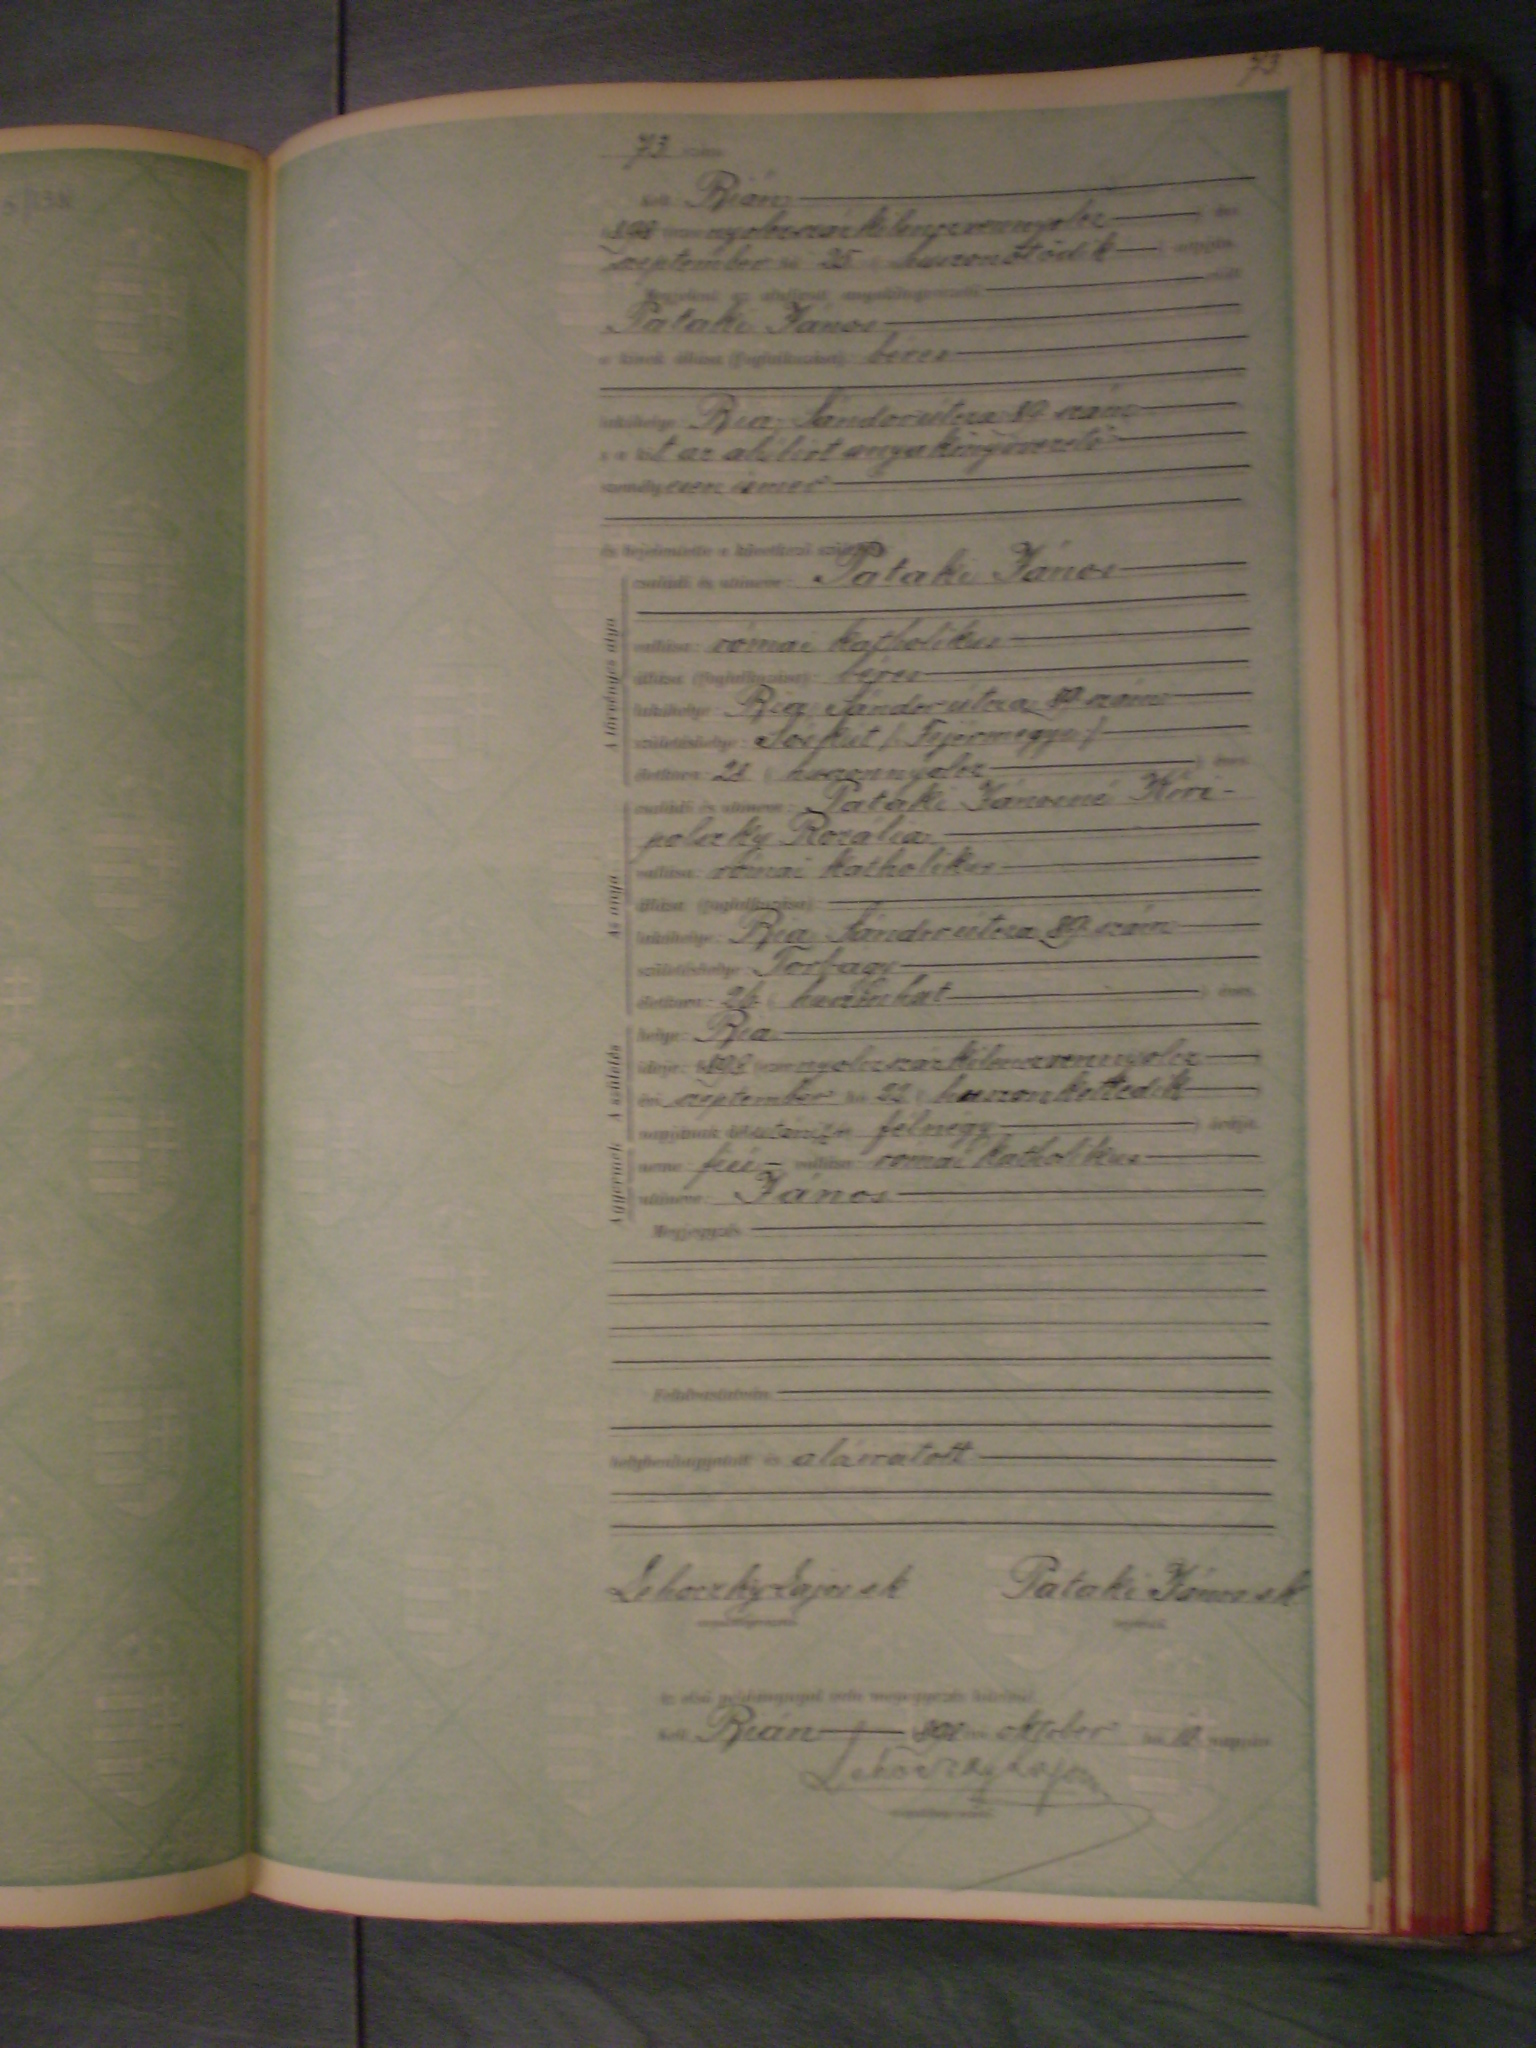 73
73 szám
Kelt Bián
1898 (ezer nyolczszázkilenczvennyolcz) évi
szeptember hó 25 (huszonötödik) napján.
Megjelent az alulírott anyakönyvvezető előtt
Pataki János
a kinek állása (foglalkozása): béres
lakóhelye: Bia, Sándor útcza 89 szám
s a kit az alulirt anyakönyvvezető
személyesen ismer
és bejelentette a következő
A törvényes atya
családi és utóneve: Pataki János
vallása: római katholikus
állása (foglalkozása): béres
lakóhelye: Bia, Sándor útcza 89 szám
születéshelye: Sóskut (Fejérmegye)
életkora: 28 (huszonnyolcz) éves.
Az anya
családi és utóneve: Pataki Jánosné
Rozália
vallása: római katholikus
állása (foglalkozása):
lakóhelye: Bia, Sándor útcza 89 szám
születéshelye: Torbágy
életkora: 26 (huszonhat) éves.
A születés
helye: Bia
ideje: 1898 (ezer nyolczszázkilenczvennyolcz)
évi szeptember hó 22 (huszonkettedik
napjának félnégy) órája.
A gyermek
neme: fiú vallása: római katholikus
utóneve: János
Megjegyzés
Felolvastatván,
helybenhagyatott és aláiratott
Lehoczky Lajos sk Pataki János sk
anyakönyvvezető
Az első példánynyal való megegyezés hiteléül
Kelt Bián 1898 évi oktober hó 10 napján
Lehoczky Lajos
anyakönyvvezető